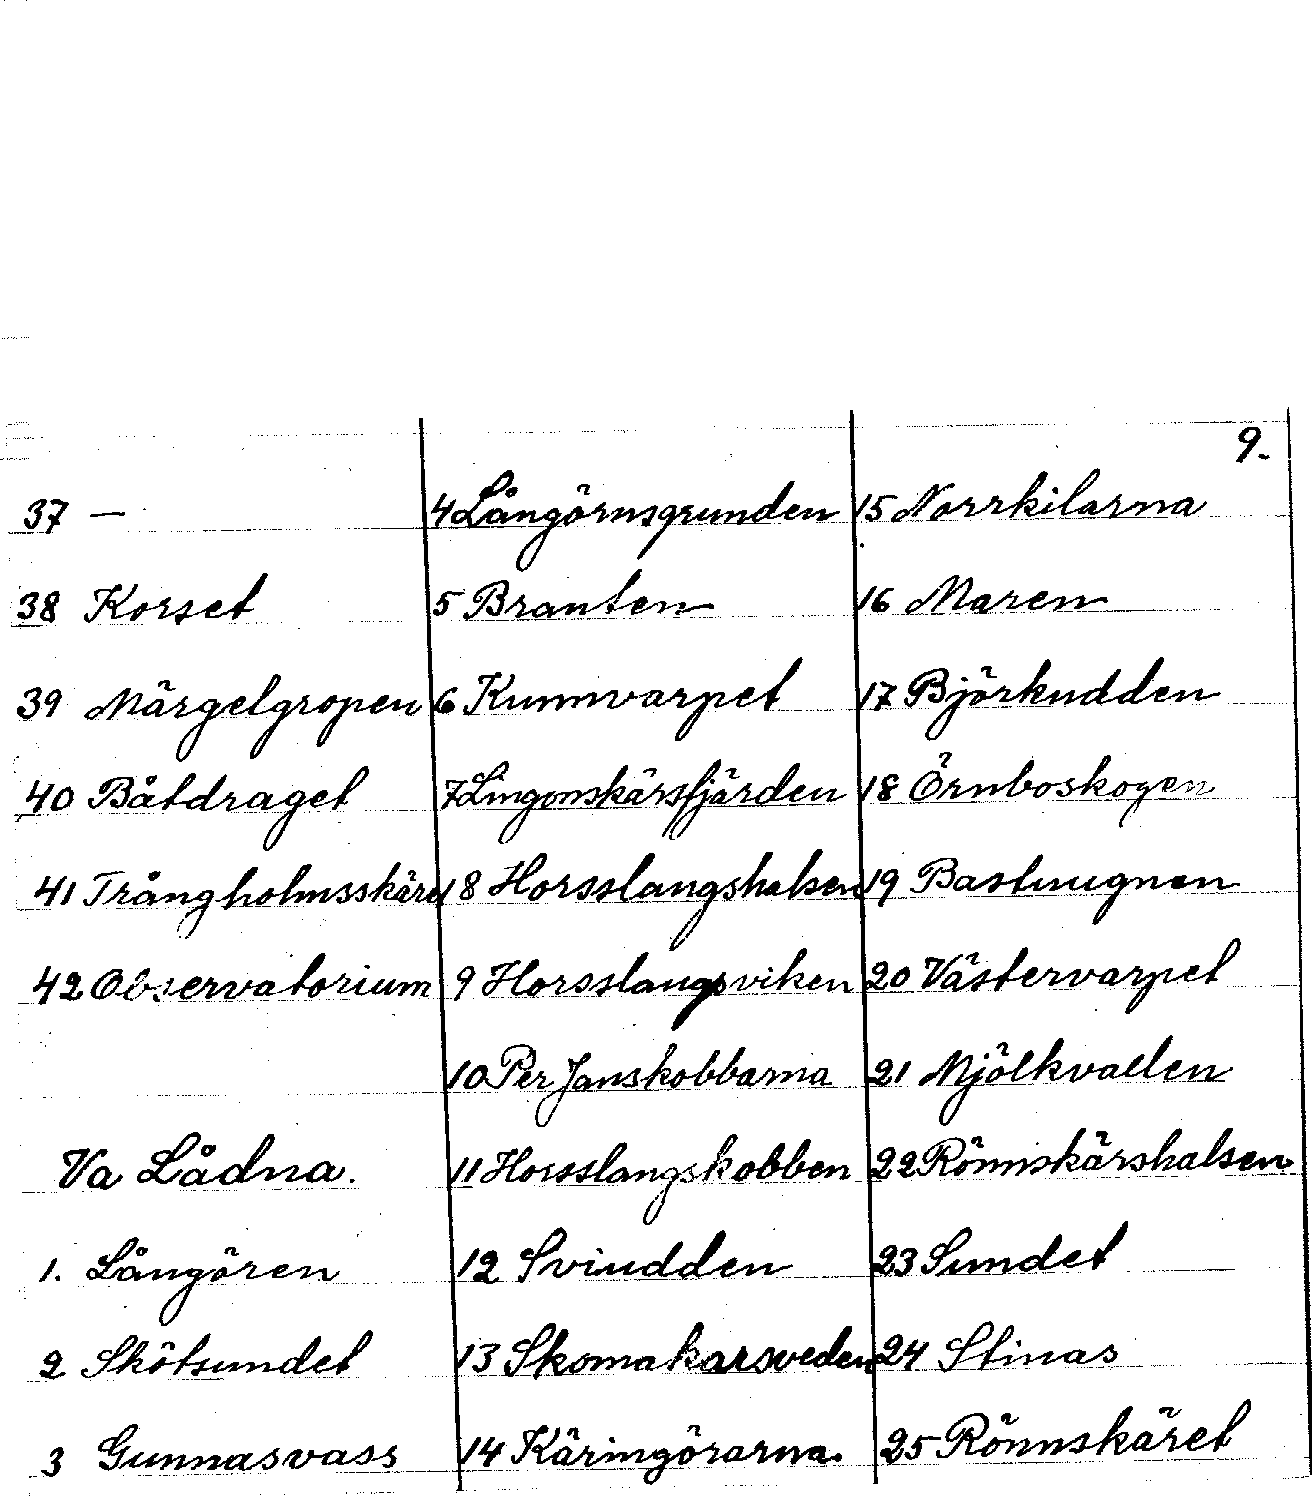 9.
37 —
38 Korset
39 Märgelgropen
40 Båtdraget
41 Trångholmsskäret
42 Observatorium
Va Lådna.
1. Långören
2 Skötsundet
3 Gunnasvass
4 Långörnsgrunden
5 Branten
6 Kumvarpet
7 Lingonskärsfjärden
8 Horsslangshalsen
9 Horsslangsviken
10 Per Janskobbarna
11 Horsslangskobben
12 Sviudden
13 Skomakarsveden
14 Käringörarna.
15 Norrkilarna
16 Maren
17 Björkudden
18 Örnboskogen
19 Bastuugnen
20 Västervarpet
21 Mjölkvallen
22 Rönnskärshalsen
23 Sundet
24 Stinas
25 Rönnskäret